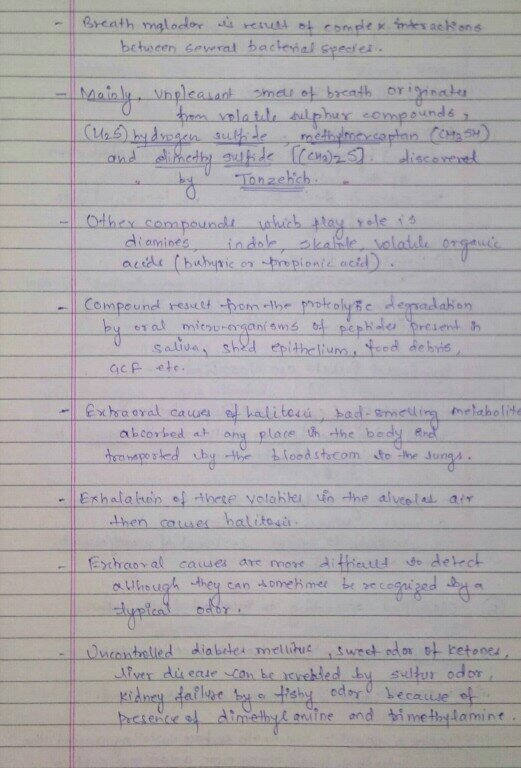 - Breath malodor is result of complex interactions
between several bacterial species.
- Mainly, unpleasant smell of breath originates
from volatile sulphur compounds,
(H2S) hydrogen sulfide, methylmercaptan (CH3SH)
and dimethy sulfide [(CH3)2S]. discovered
by Tonzetich.
- Other compounds which play role is
diamines, indole, skatole, volatile organic
acids (butyric or propionic acid).
- Compound result from the proteolytic degradation
by oral micro-organisms of peptides present in
saliva, shed epithelium, food debris,
GCF etc.
- Extraoral causes of halitosis, bad-smelling metabolite
absorbed at any place in the body and
transported by the bloodstream to the lungs.
- Exhalation of these volatiles in the alveolar air
then causes halitosis.
- Extraoral causes are more difficult to detect
although they can sometimes be recognized by a
typical odor.
- Uncontrolled diabetes mellitus, sweet odor of ketones,
liver disease can be revealed by sulfur odor,
kidney failure by a fishy odor because of
presence of dimethylamine and trimethylamine.